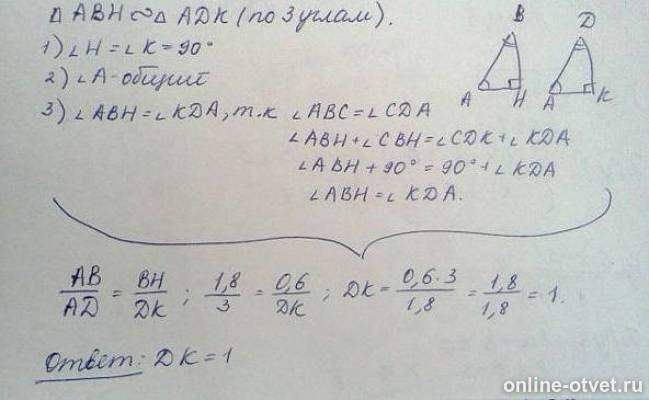 △ ABH ∾ △ ADK (по 3 углам).
1) ∠H = ∠K = 90°
2) ∠A - общий
3) ∠ABH = ∠KDA, т.к ∠ABC = ∠CDA
∠ABH + ∠CBH = ∠CDK + ∠KDA
∠ABH + 90° = 90° + ∠KDA
∠ABH = ∠KDA.
B D
A H A K
AB/AD = BH/DK ; 1,8/3 = 0,6/DK ; DK = 0,6·3/1,8 = 1,8/1,8 = 1.
Ответ: DK = 1
online-otvet.ru